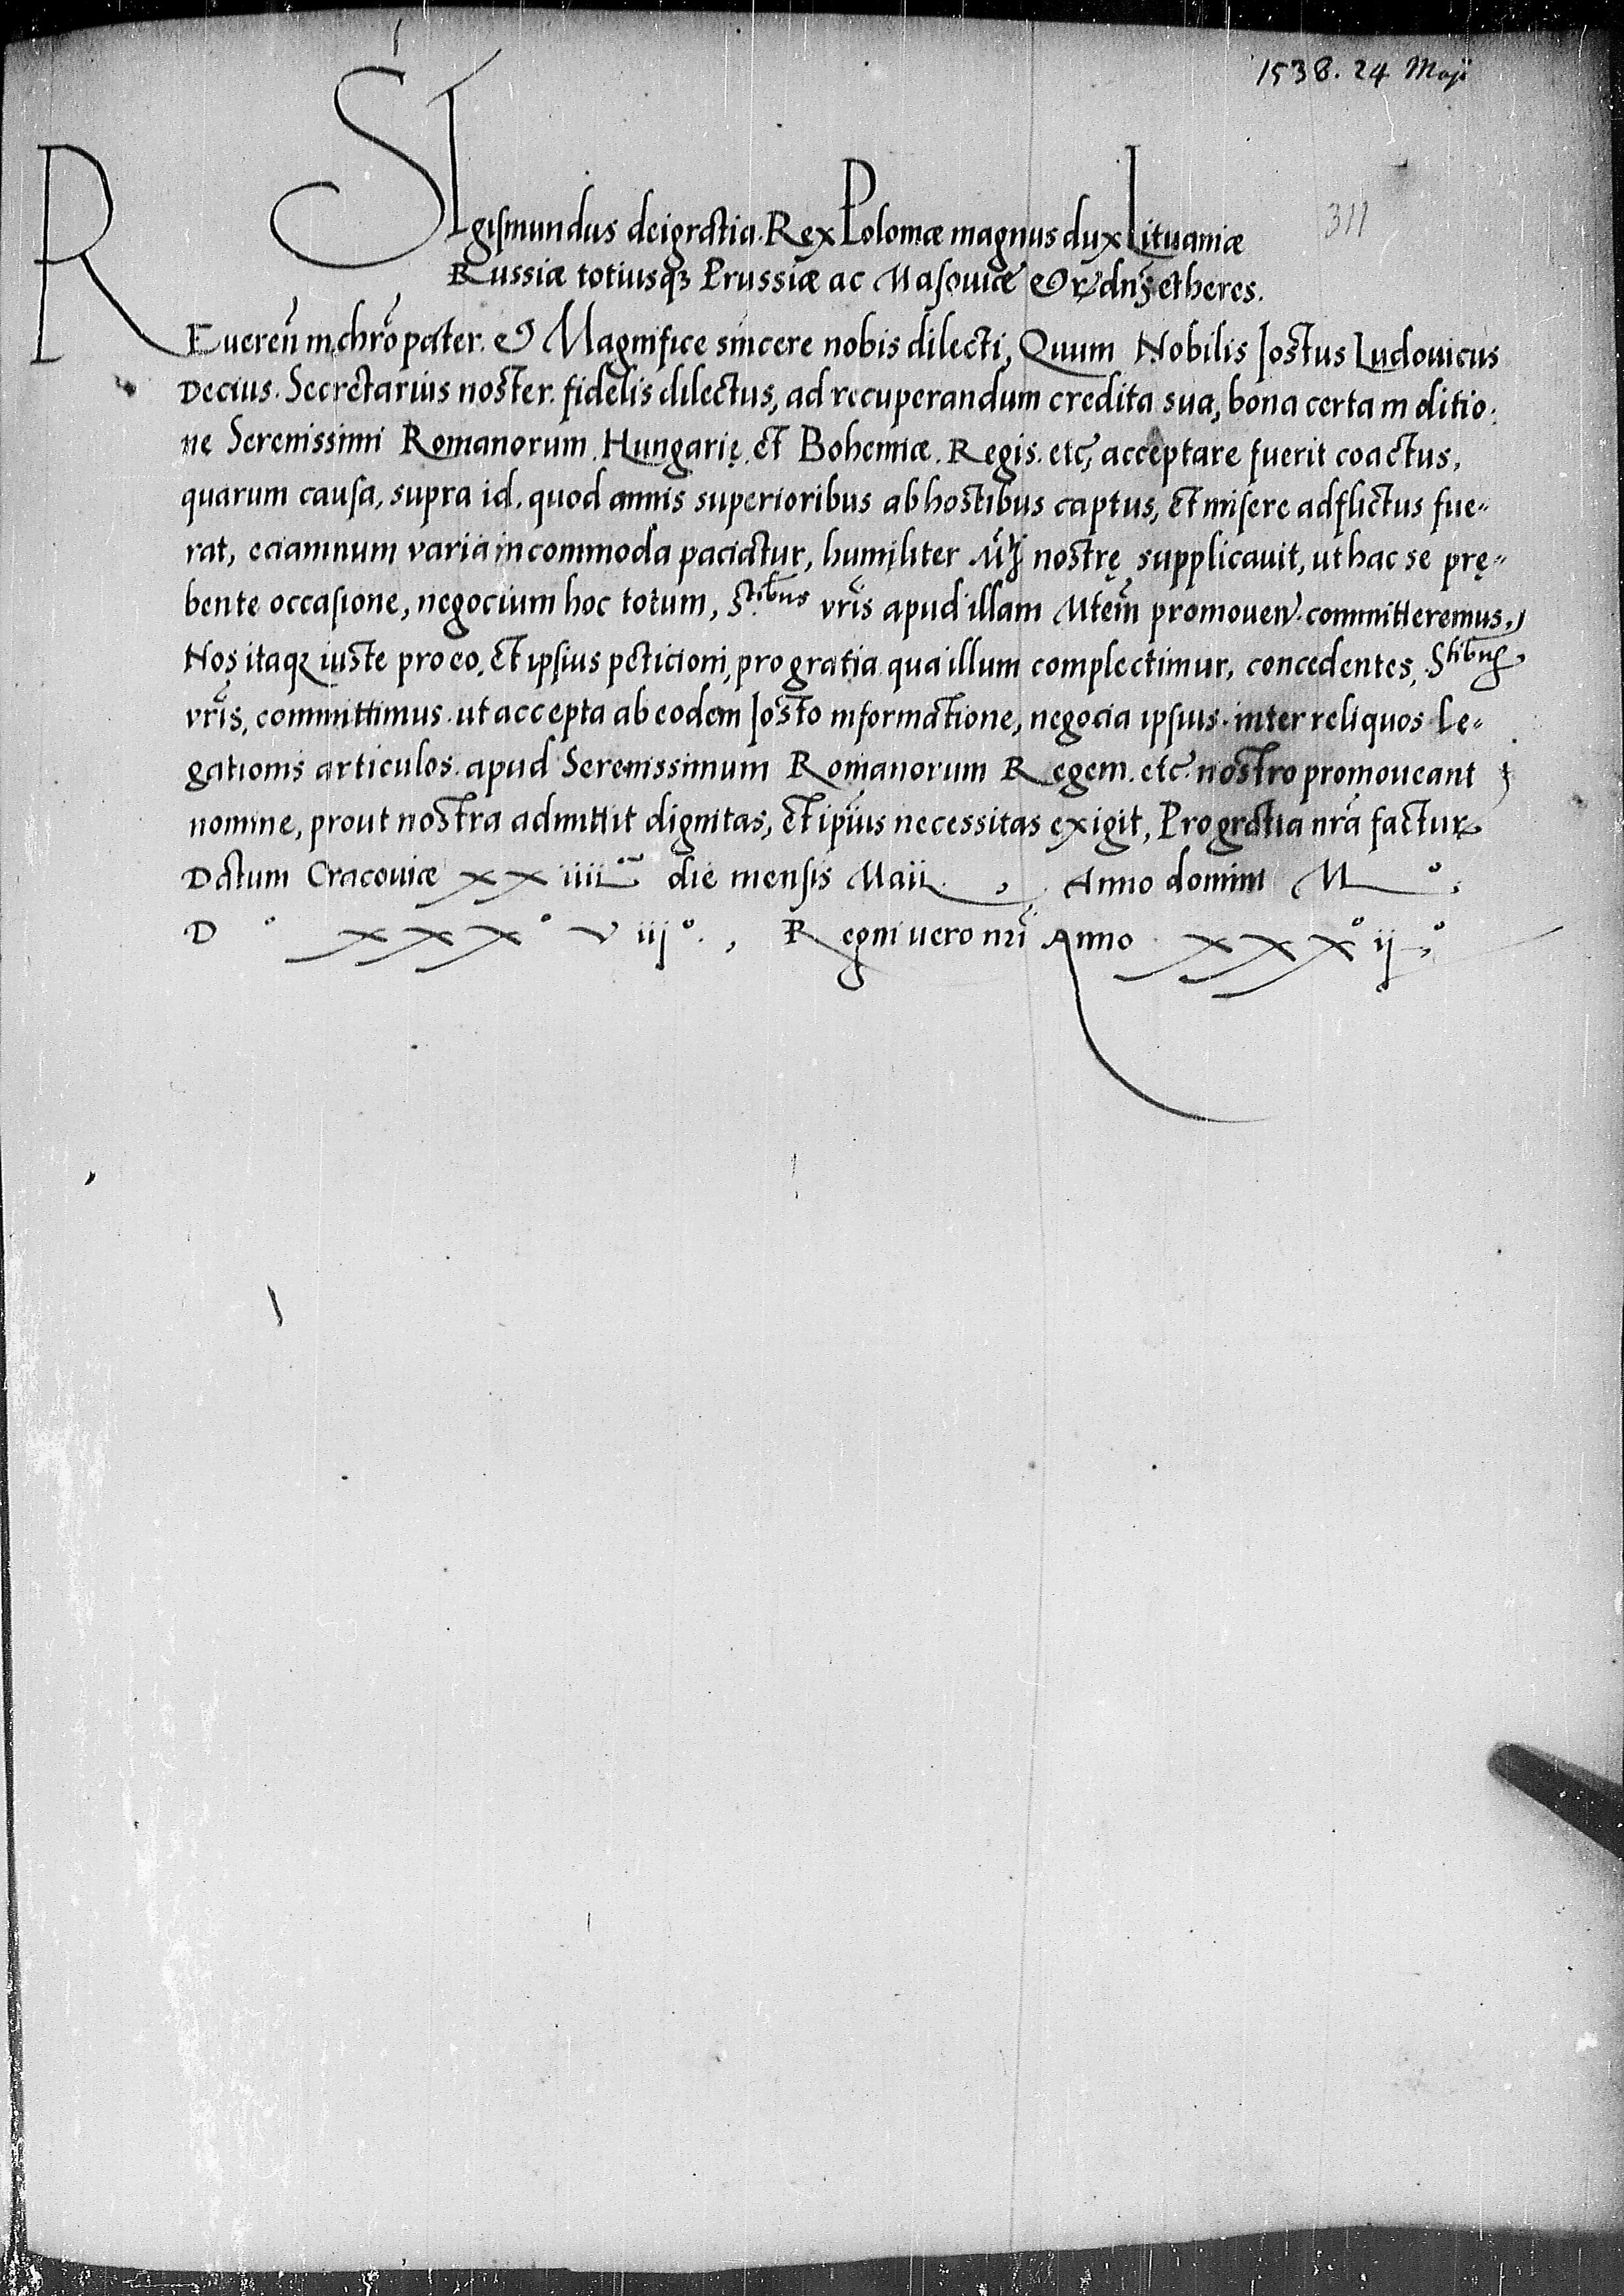 1538. 24 Maji
311
SIgismundus dei gratia Rex Poloniæ magnus dux Lituaniæ
Russiæ totiusq3 Prussiæ ac Masoviæ etc dns et heres.
REueren in chro pater et Magnifice sincere nobis dilecti, Quum Nobilis Jostus Ludovicus
Decius. Secretarius noster. fidelis dilectus, ad recuperandum credita sua, bona certa in ditio:
ne Serenissimi Romanorum. Hungarię. et Bohemiæ. Regis. etc, acceptare fuerit coactus,
quarum causa, supra id. quod annis superioribus ab hostibus captus, et misere adflictus fue-
rat, eciamnum varia incommoda paciatur, humiliter nostrę supplicavit, ut hac se prę-
bente occasione, negocium hoc totum, Stibus vris apud illam Mtem promoven committeremus,
Nos itaq iuste pro eo, et ipsius peticioni, pro gratia qua illum complectimur, concedentes, Stibus
vris, committimus. ut accepta ab eodem Josto informatione, negocia ipsius. inter reliquos Le-
gationis articulos. apud Serenissimum Romanorum Regem. etc. nostro promoveant
nomine, prout nostra admittit dignitas, et ipius necessitas exigit, Pro gratia nra factur
Datum Cracoviæ xxiiii die mensis Maii, Anno domini M°.
D° xxx° viij°., Regni vero nri Anno xxx° ij°